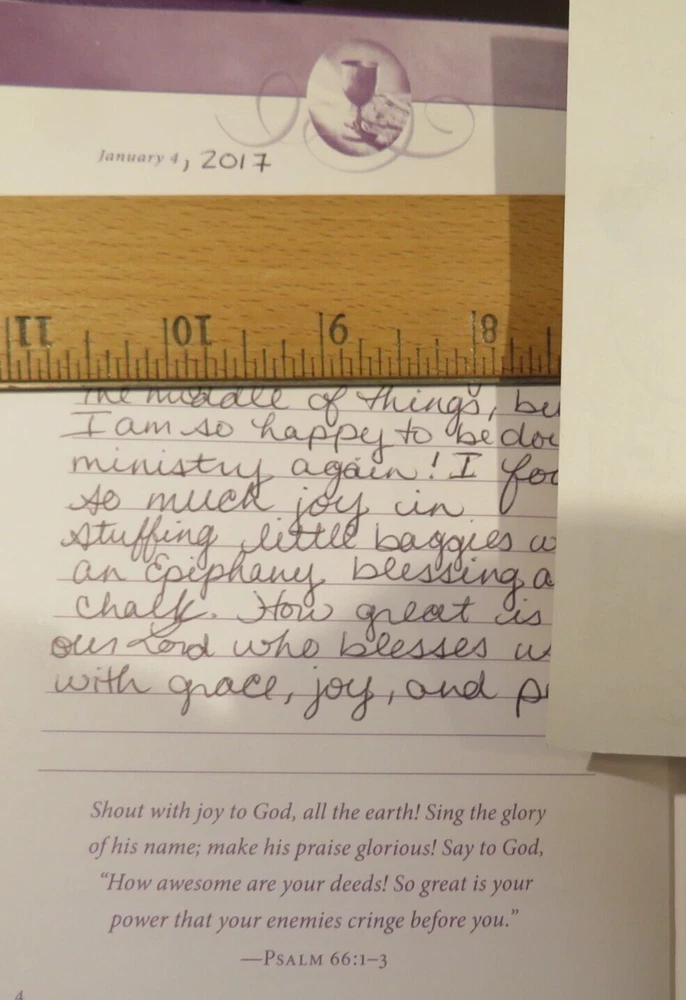 January 4, 2017
11 10 9 8
the middle of things,
I am so happy to be
ministry again! I
so much joy in
stuffing little baggies
an Epiphany blessing
chalk. How great is
our Lord who blesses
with grace, joy, and
Shout with joy to God, all the earth! Sing the glory
of his name; make his praise glorious! Say to God,
“How awesome are your deeds! So great is your
power that your enemies cringe before you.”
—Psalm 66:1–3
4